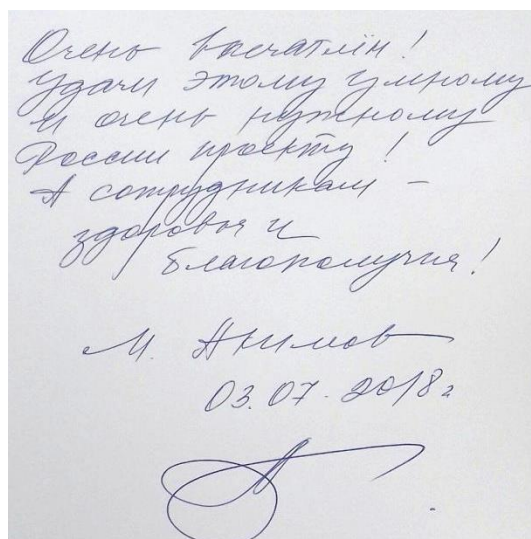 Очень впечатлён!
Удачи этому умному
и очень нужному
России проекту!
А сотрудникам –
здоровья и
благополучия!
М. Акимов
03.07.2018 г